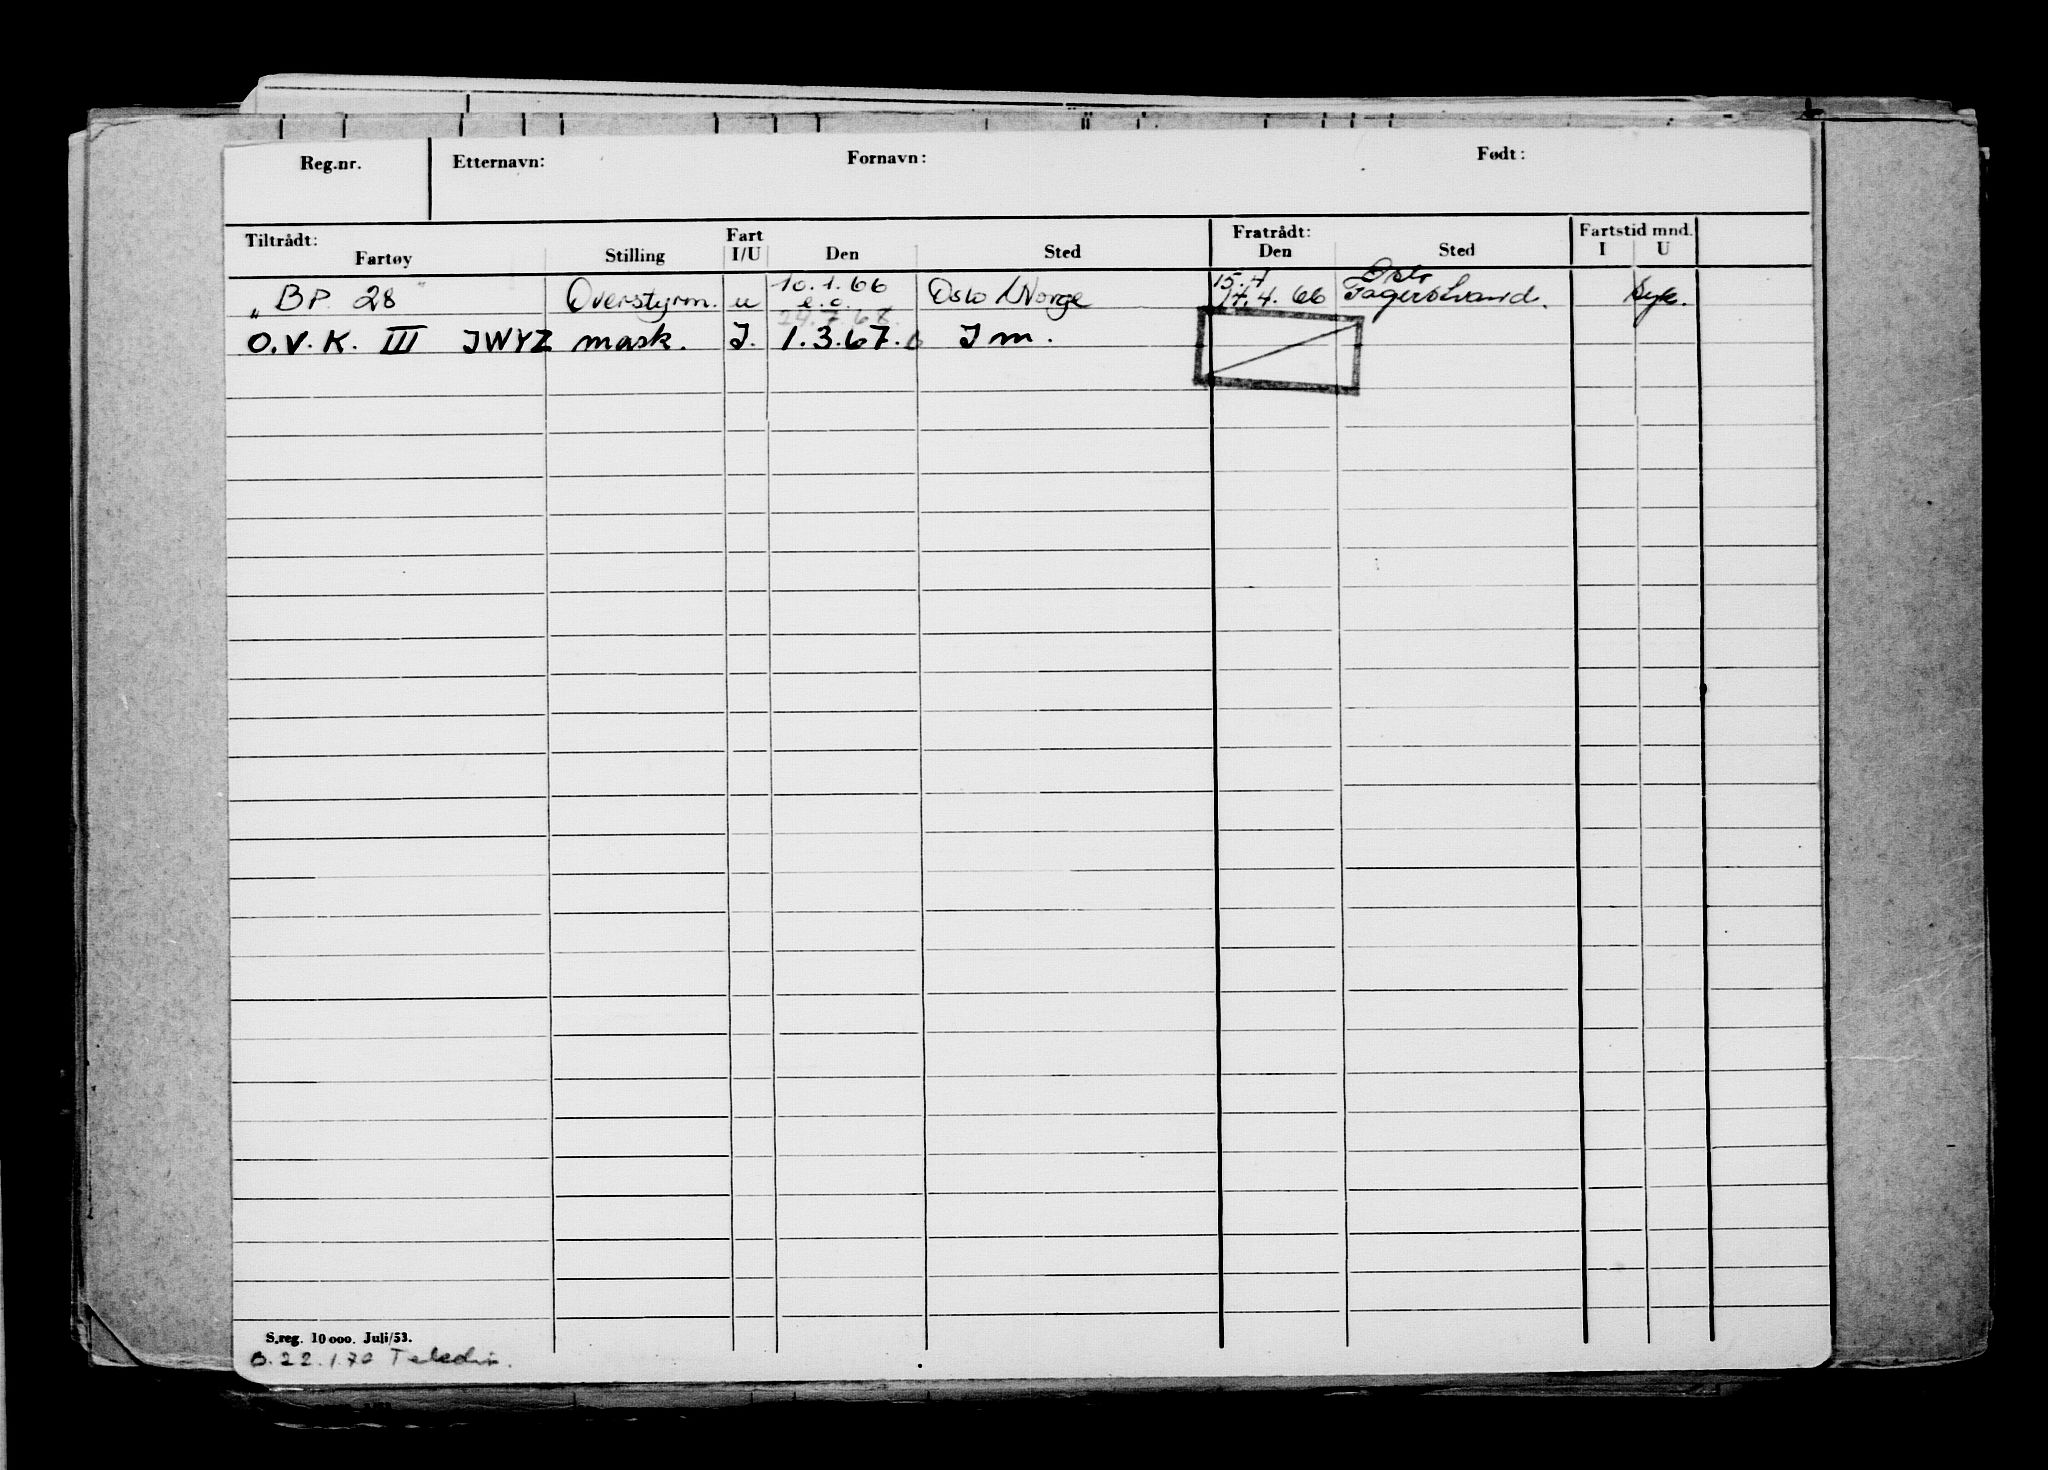 Reg.nr. Etternavn: Fornavn: Født:
Tiltrådt: Fart Fratrådt: Fartstid mnd.
Fartøy Stilling I/U Den Sted Den Sted I U
10.1.66 15.4 Oslo
„BP. 28" Overstyrm. u e.o. Oslo Norge 14.4.66 Fagerstrand. syk.
29.7.68.
O.V.K. III JWYZ mask. J. 1.3.67. Jm.
S.reg. 10 000. Juli/53.
B.22.1.70 Teledir.